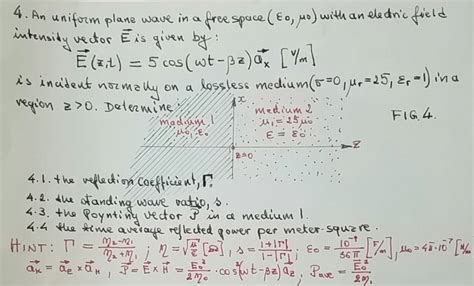 4. An uniform plane wave in a free space (ε₀, μ₀) with an electric field
intensity vector E⃗ is given by:
E⃗(z,t) = 5 cos(ωt - βz) a⃗ₓ [V/m]
is incident normally on a lossless medium (σ=0, μᵣ=25, εᵣ=1) in a
region z>0. Determine:
x
medium 1
μ₀, ε₀
medium 2
μ₁ = 25μ₀
ε = ε₀
FIG. 4.
z=0
z
4.1. the reflection coefficient, Γ.
4.2. the standing wave ratio, s.
4.3. the Poynting vector P⃗ in a medium 1.
4.4 the time average reflected power per meter-square.
HINT: Γ = (η₂-η₁)/(η₂+η₁) ; η = √(μ/ε) [Ω], s = (1+|Γ|)/(1-|Γ|) ; ε₀ = 10⁻⁹/36π [F/m], μ₀ = 4π·10⁻⁷ [H/m]
a⃗ₖ = a⃗_E × a⃗_H , P⃗ = E⃗ × H⃗ = E₀²/2η₀ · cos²(ωt - βz) a⃗_z , P_AVE = E₀²/2η₁